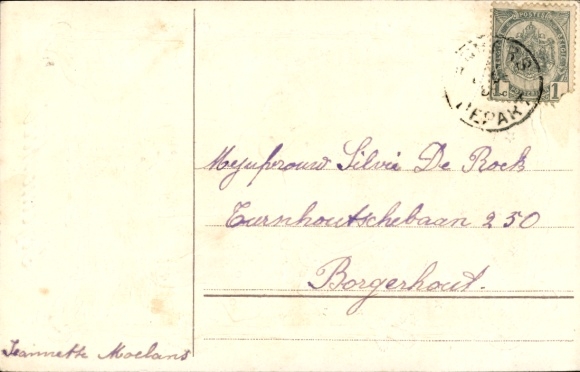 POSTES
1 c 1
DEPART
Mejufrouw Silvia De Rock
Turnhoutschebaan 250
Borgerhout.
Jeannette Moelans